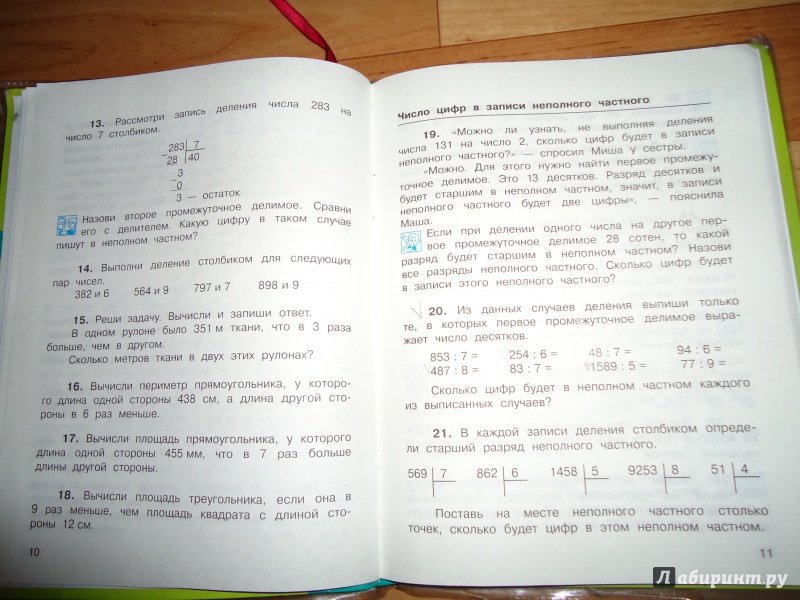 13. Рассмотри запись деления числа 283 на
число 7 столбиком.
283 7
28 40
3
0
3 — остаток
Назови второе промежуточное делимое. Сравни
его с делителем. Какую цифру в таком случае
пишут в неполном частном?
14. Выполни деление столбиком для следующих
пар чисел.
382 и 6 564 и 9 797 и 7 898 и 9
15. Реши задачу. Вычисли и запиши ответ.
В одном рулоне было 351 м ткани, что в 3 раза
больше, чем в другом.
Сколько метров ткани в двух этих рулонах?
16. Вычисли периметр прямоугольника, у которо-
го длина одной стороны 438 см, а длина другой сто-
роны в 6 раз меньше.
17. Вычисли площадь прямоугольника, у которого
длина одной стороны 455 мм, что в 7 раз больше
длины другой стороны.
18. Вычисли площадь треугольника, если она в
9 раз меньше, чем площадь квадрата с длиной сто-
роны 12 см.
10
Число цифр в записи неполного частного
19. «Можно ли узнать, не выполняя деления
числа 131 на число 2, сколько цифр будет в записи
неполного частного?» — спросил Миша у сестры.
«Можно. Для этого нужно найти первое промежу-
точное делимое. Это 13 десятков. Разряд десятков и
будет старшим в неполном частном, значит, в записи
неполного частного будет две цифры», — пояснила
Маша.
Если при делении одного числа на другое пер-
вое промежуточное делимое 28 сотен, то какой
разряд будет старшим в неполном частном? Назови
все разряды неполного частного. Сколько цифр будет
в записи этого неполного частного?
20. Из данных случаев деления выпиши только
те, в которых первое промежуточное делимое выра-
жает число десятков.
853 : 7 = 254 : 6 = 48 : 7 = 94 : 6 =
487 : 8 = 83 : 7 = 1589 : 5 = 77 : 9 =
Сколько цифр будет в неполном частном каждого
из выписанных случаев?
21. В каждой записи деления столбиком опреде-
ли старший разряд неполного частного.
569 7 862 6 1458 5 9253 8 51 4
Поставь на месте неполного частного столько
точек, сколько будет цифр в этом неполном частном.
11
Лабиринт.ру